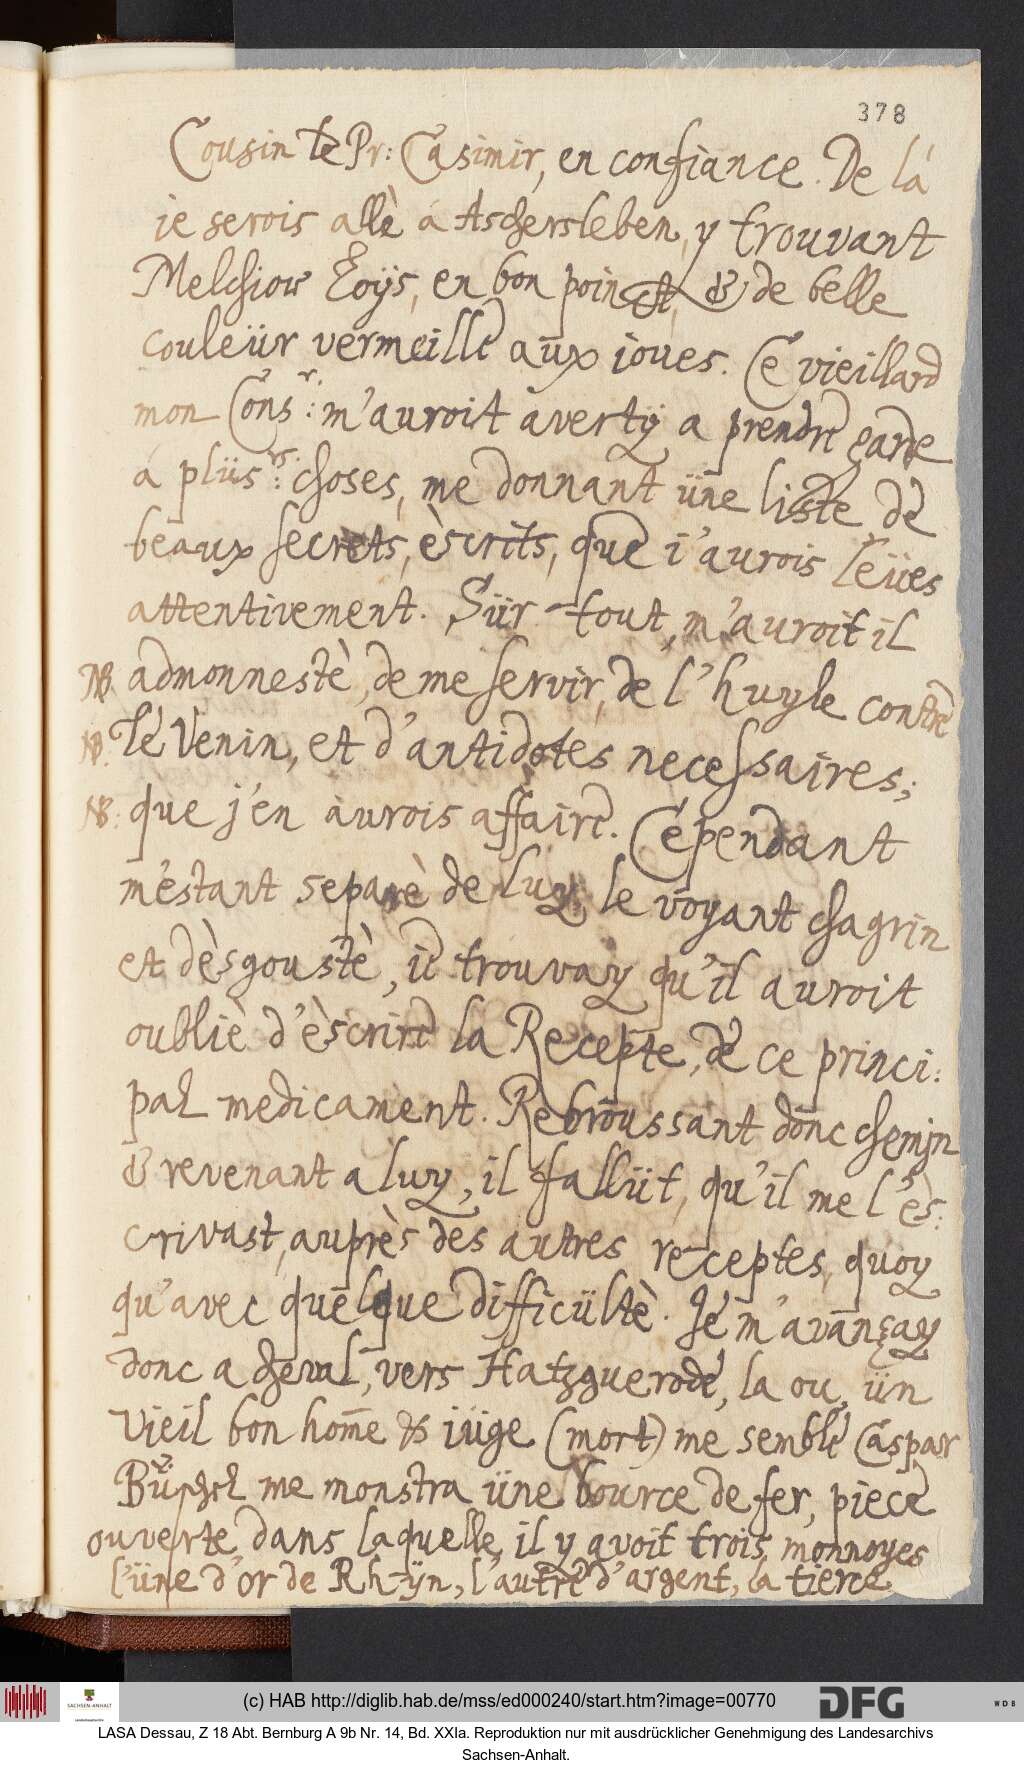 378
Cousin le Pr: Casimir, en confiance. De lá
je serois allè á Aschersleben, y trouvant
Melchior Loÿs, en bon poinct, & de belle
couleür vermeille aux joues. Ce vieillard
mon Cons:r m'auroit avertÿ a prendre garde
a plüs:rs choses, me donnant üne liste de
beaux secrets, èscrits, que i'aurois leües
attentivement. Sür-tout, m'auroit il
NB. admonnestè, de me servir, de l'huyle contre
NB. le Venin, et d'antidotes necessaires;
NB: que j'en aurois affaire. Cependant
m'estant separè de luy, le voyant chagrin
et dèsgoustè, ie trouvay qu'il auroit
oubliè d'èscrire la Recepte, de ce princi:
pal medicament. Rebroussant donc chemin
& revenant a luy, il fallüt, qu'il me l'ès:
crivast, auprès des autres receptes, quoy
qu'avec quelque difficültè. Je m'avançay
donc a cheval, vers Hatzguerode, la ou, ün
vieil bon hom̄e & iüge (mort) me semble Caspar
me monstra üne bource de fer, piece
ouverte dans laquelle il y avoit trois monnoyes
l'üne d'or de Rhÿn, l'autre d'argent, la tierce
(c) HAB http://diglib.hab.de/mss/ed000240/start.htm?image=00770
DFG
WDB
SACHSEN-ANHALT
LASA Dessau, Z 18 Abt. Bernburg A 9b Nr. 14, Bd. XXIa. Reproduktion nur mit ausdrücklicher Genehmigung des Landesarchivs
Sachsen-Anhalt.